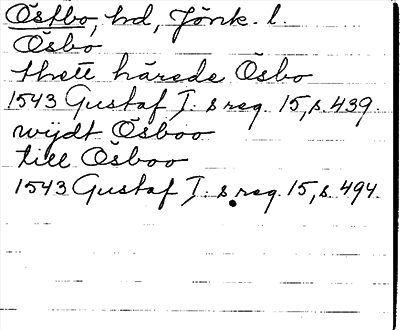 Östbo, hd, Jönk. l.
Ösbo
thett härede Ösbo
1543 Gustaf I:s reg. 15, s. 439.
wijdt Ösboo
till Ösboo
1543 Gustaf I:s reg. 15, s. 494.